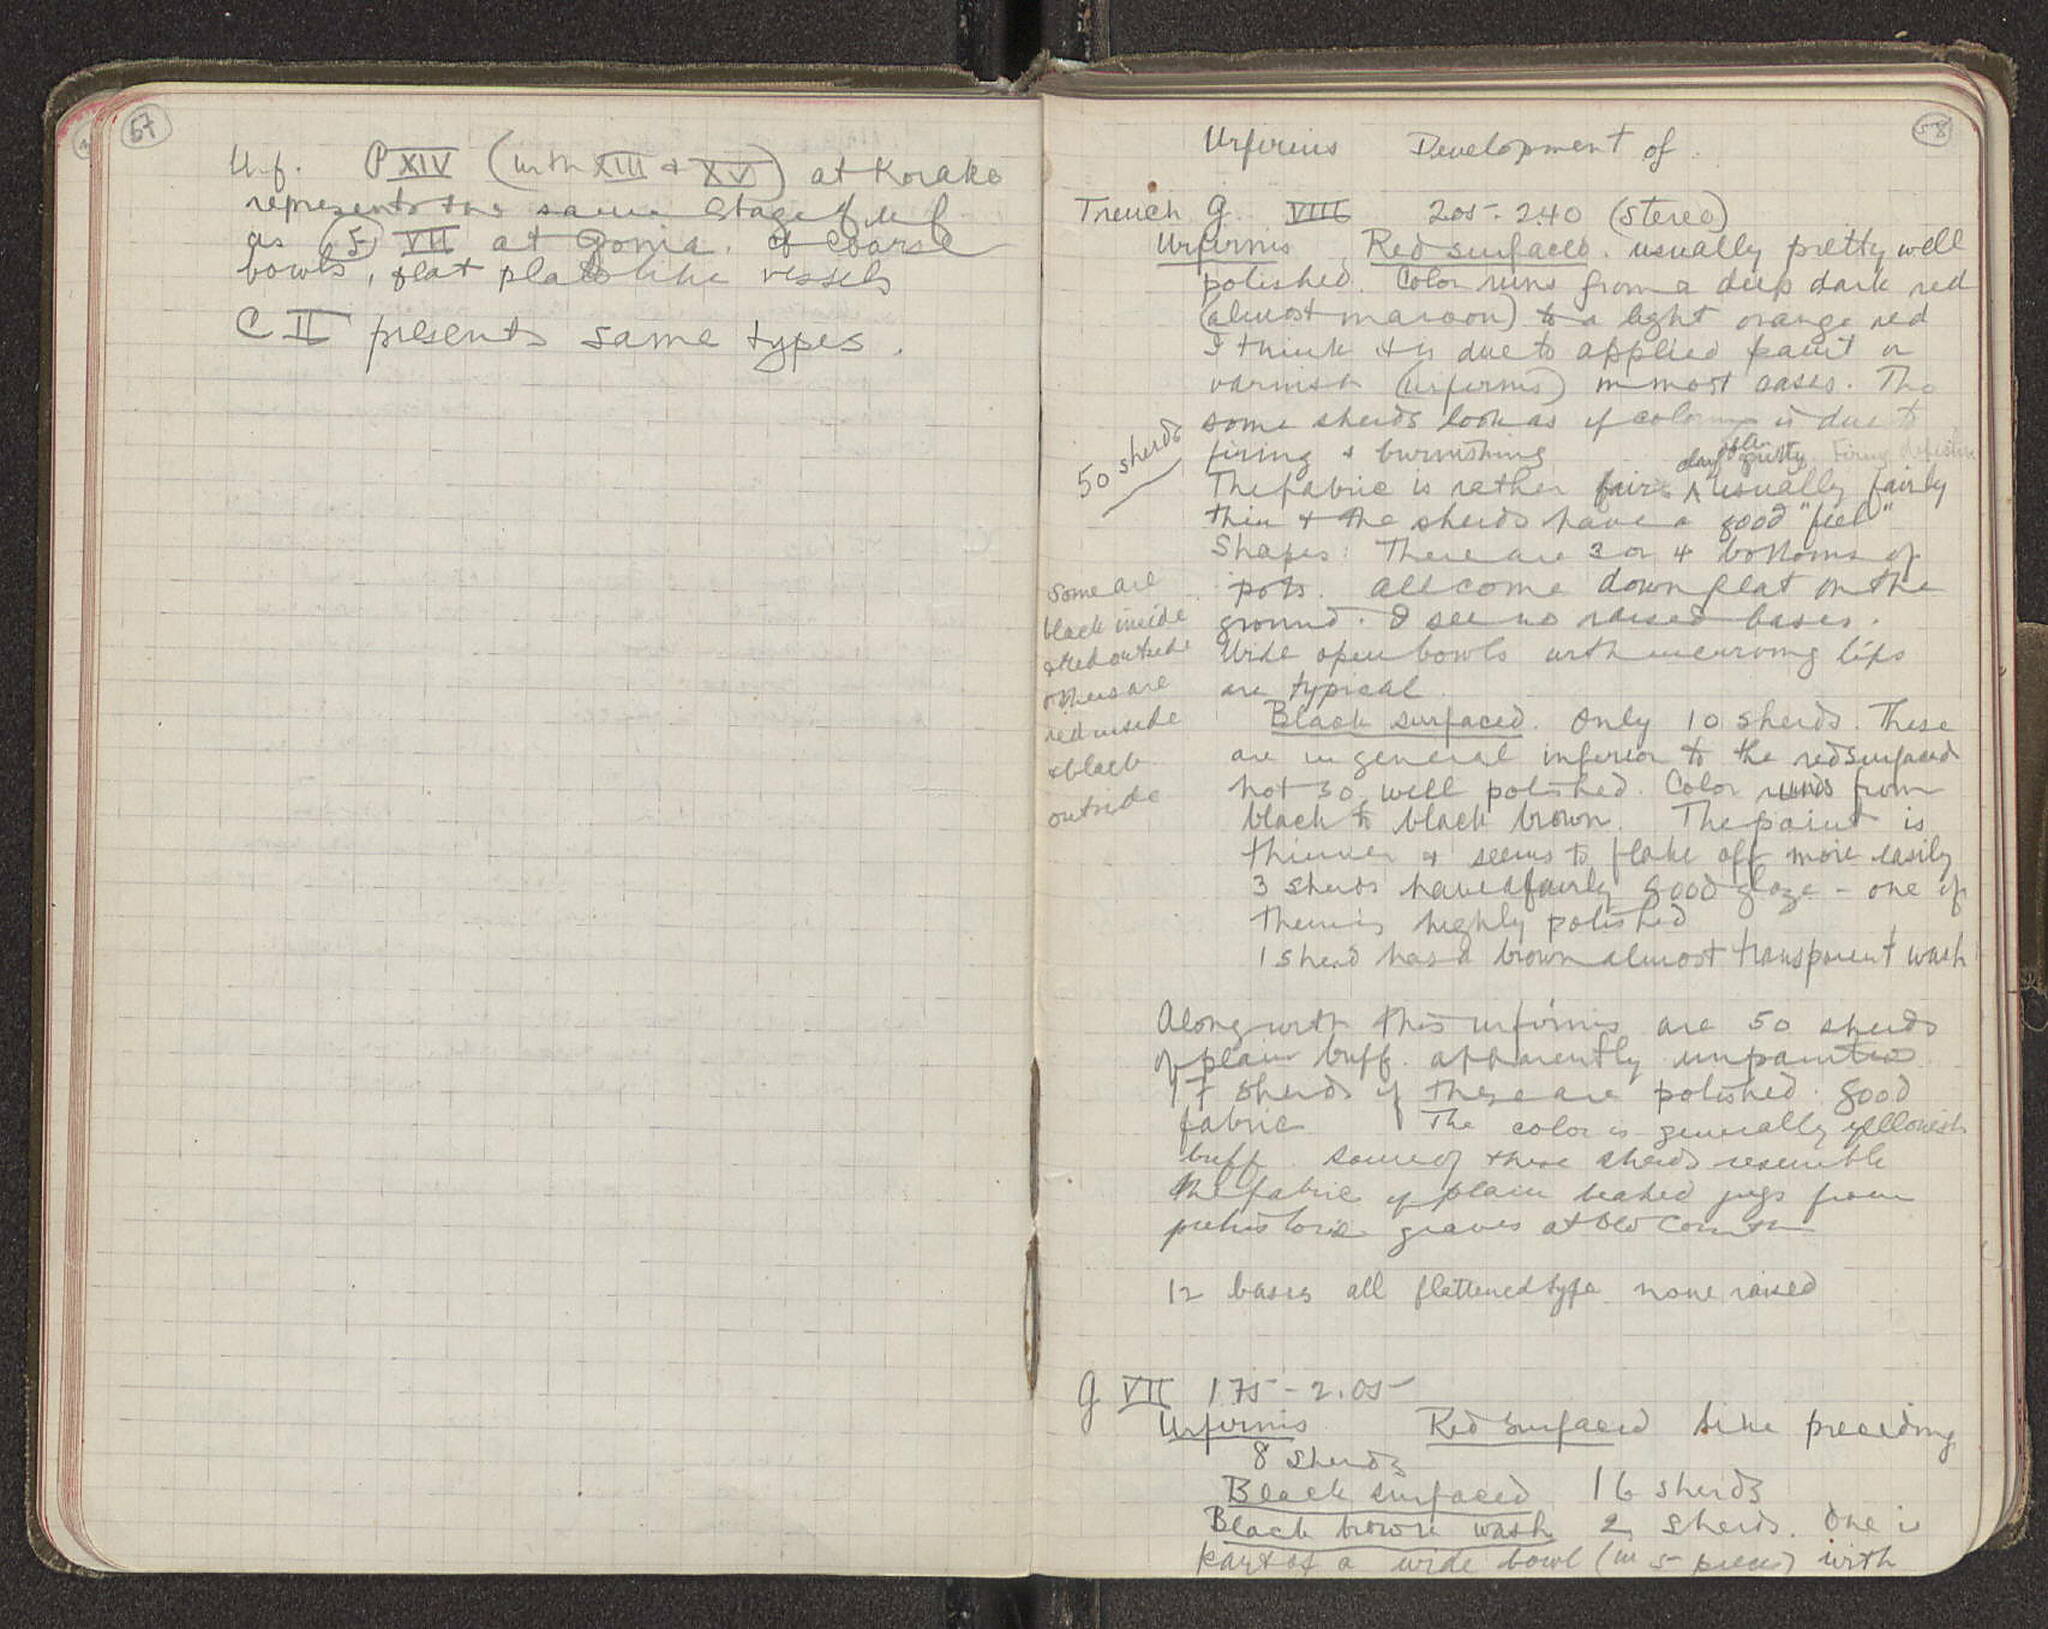 57
U.f. P XIV (with XIII + XV) at Korako
represents the same stage of u f
as (F) VII at Gonia. cf coarse
bowls, flat platelike vessels
C II presents same types.
58
Urfirnis Development of
Trench G. VIII 2.05-2.40 (stereo)
Urfirnis Red surfaced. usually pretty well
polished. Color runs from a deep dark red
(almost maroon) to a light orange red
I think it is due to applied paint or
varnish (urfirnis) in most cases. Tho
some sherds look as if coloring is due to
firing & burnishing
50 sherds
clay often gritty. Firing defective
The fabric is rather fair ∧ usually fairly
thin & the sherds have a good "feel"
Shapes: There are 3 or 4 bottoms of
pots. All come down flat on the
ground. I see no raised bases.
Wide open bowls with incurving lips
are typical.
Some are
black inside
& red outside
others are
red inside
& black
outside
Black surfaced. Only 10 sherds. These
are in general inferior to the red surfaced
not so well polished. Color runs from
black to black brown. The paint is
thinner & seems to flake off more easily
3 sherds have a fairly good glaze - one of
them is highly polished
1 sherd has a brown almost transparent wash
Along with this urfirnis are 50 sherds
of plain buff. apparently unpainted
17 sherds of these are polished. good
fabric The color is generally yellowish
buff. Some of these sherds resemble
the fabric of plain beaked jugs from
prehistoric graves at Old Corinth
12 bases all flattened type none raised
G VII 1.75-2.05
Urfirnis Red surfaced like preceding
8 sherds
Black surfaced 16 sherds
Black brown wash 2 sherds. One is
part of a wide bowl (in 5 pieces) with